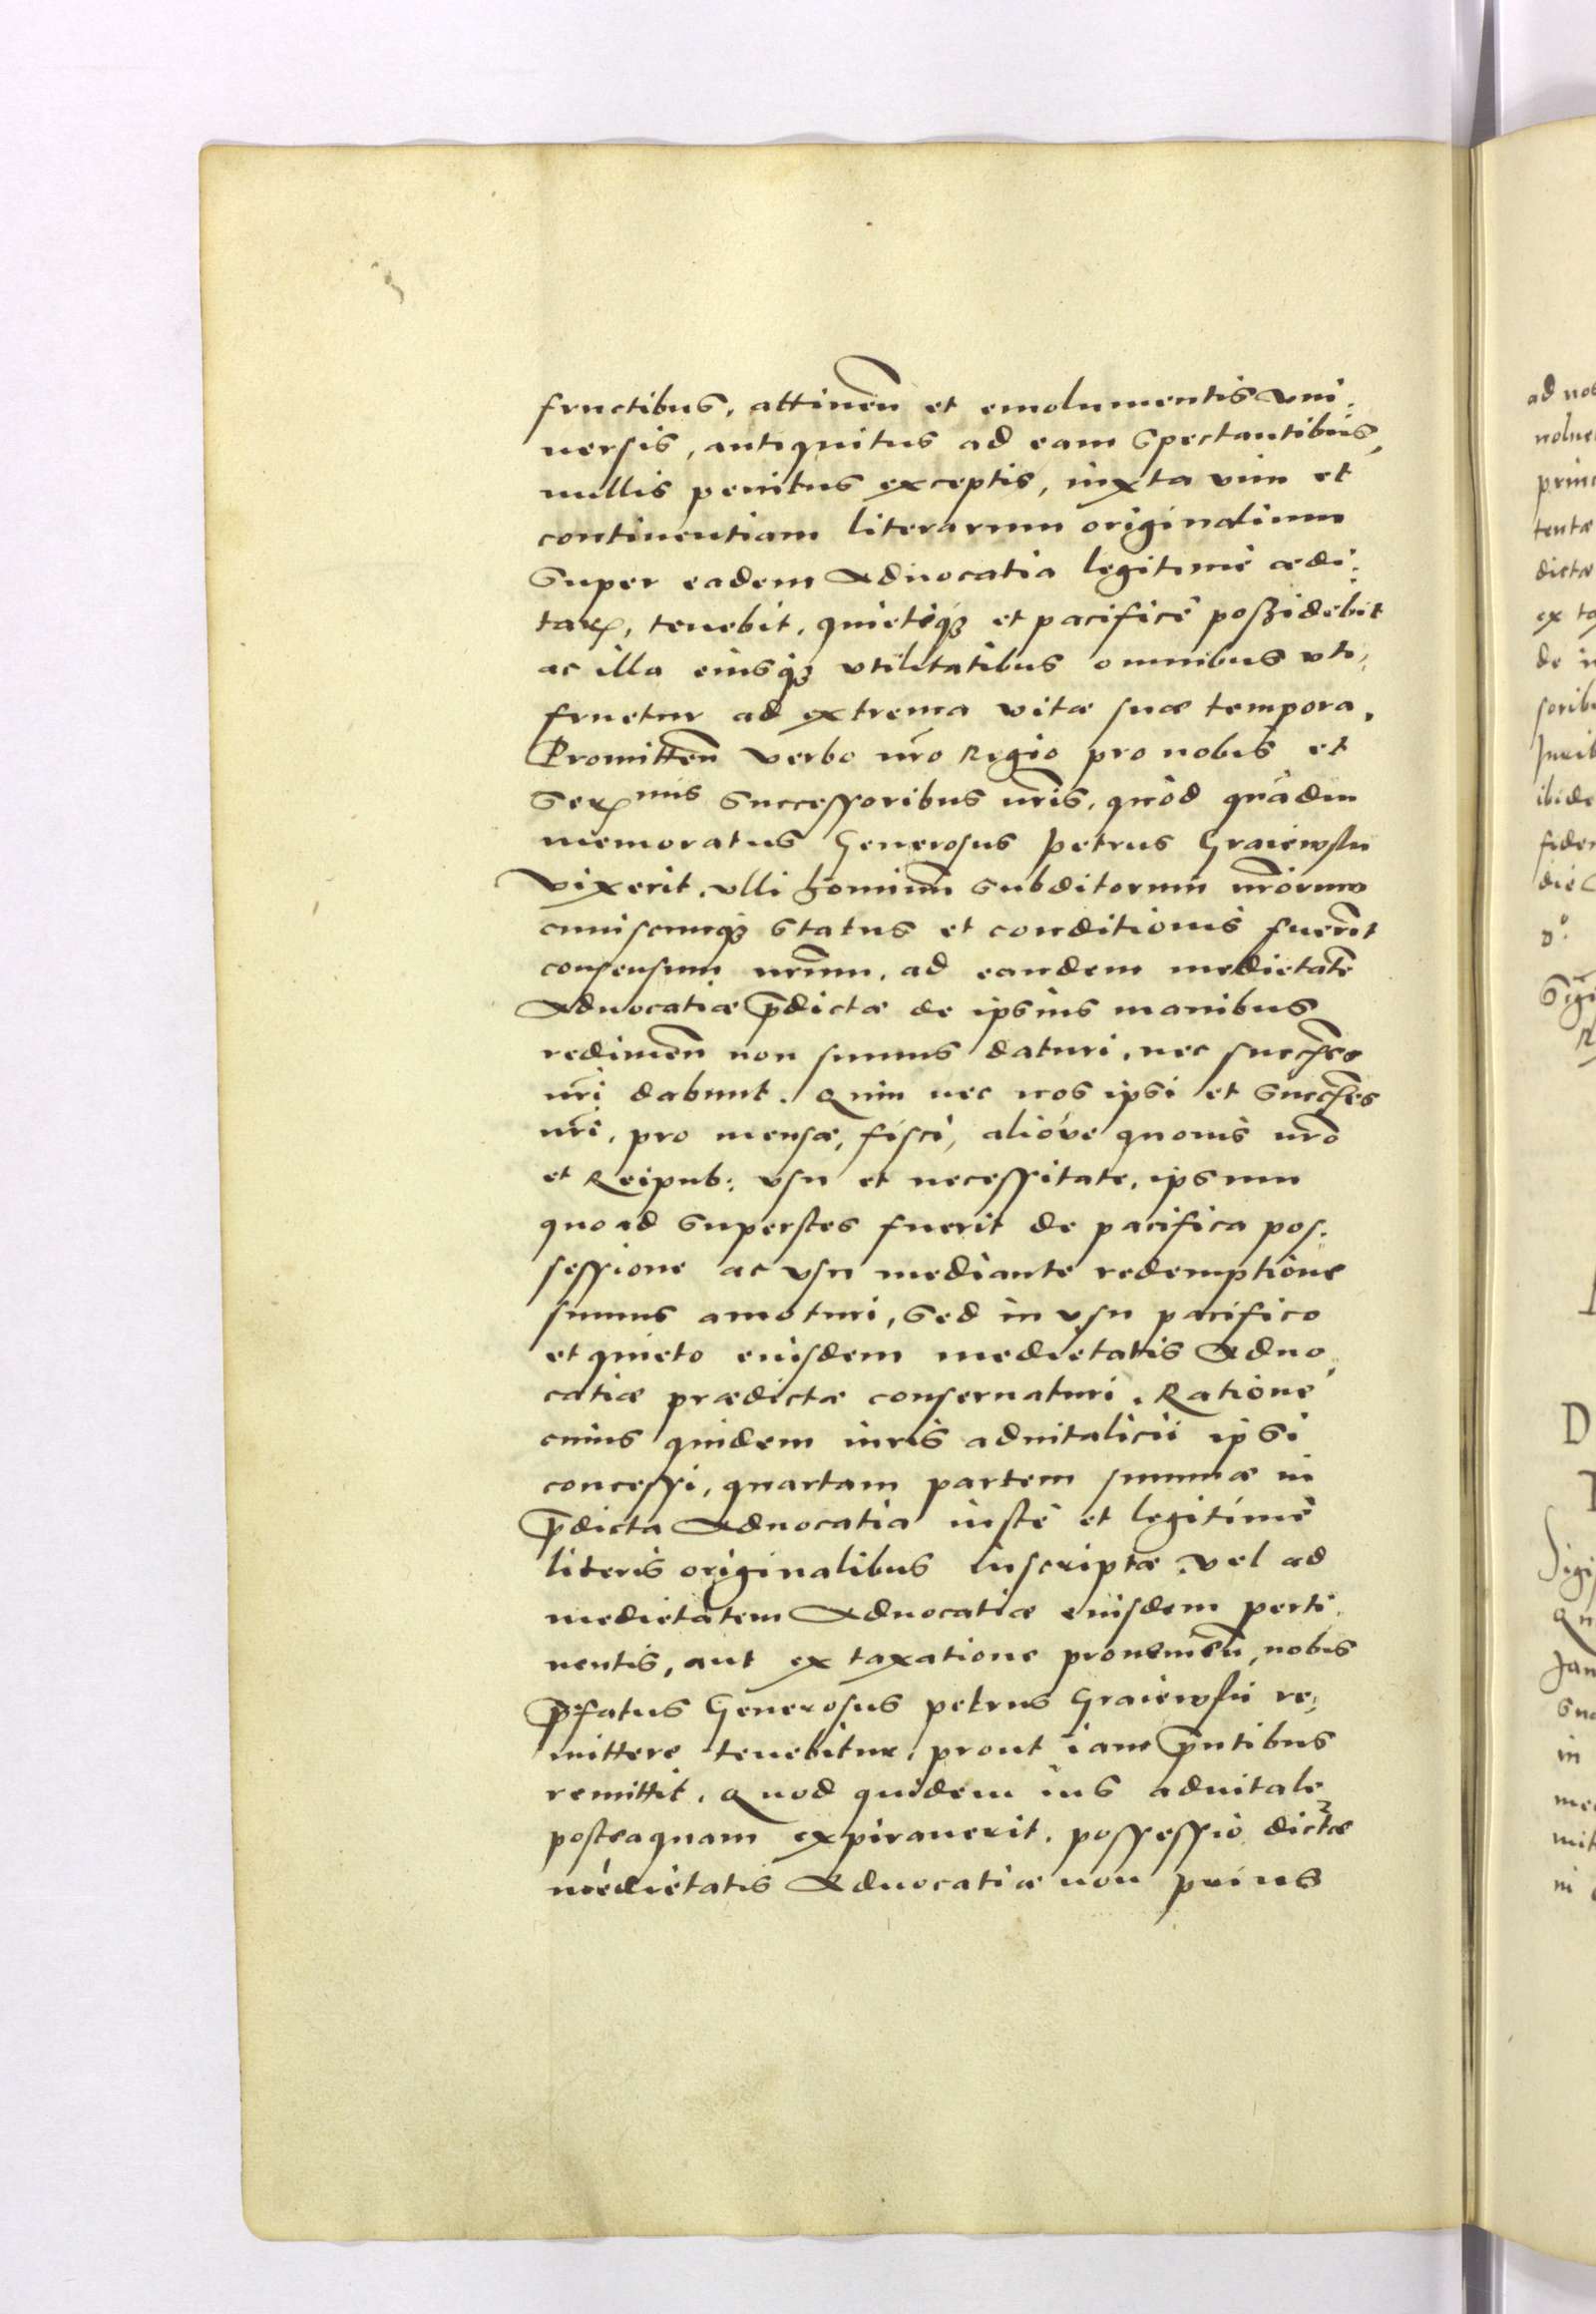 fructibus, attinen̄ et emolumentis vni:
uersis, antiquitus ad eam spectantibus,
nullis penitus exceptis, iuxta vim et
continentiam literarum originalium
super eadem Aduocatia legitimè ædi:
tarꝝ, tenebit, quieteq́ꝫ et pacificè poßidebit
ac illa eiusq́ꝫ vtilitatibus omnibus vti,
fruetur ad extrema vitæ suæ tempora.
Promitten̄ verbo nr̄o Regio pro nobis et
serꝝmis successoribus nr̄is, quòd quâdiu
memoratus Generosus Petrus Graiewski
vixerit, vlli hominū subditorum nr̄orum
cuiuscunqꝫ status et conditionis fuerīt
consensum nr̄um, ad eandem medietatē
Aduocatiæ p̄dictæ de ipsius manibus
redimen̄ non sumus daturi, nec succ̄res
nr̄i dabunt. Quin nec nos ipsi et succ̄res
nr̄i, pro mensæ, fisci, alióve quouis nr̄o
et Reipub: vsu et necessitate, ipsum
quoad superstes fuerit de pacifica pos:
sessione ac vsu mediante redemptione
sumus amoturi, sed in vsu pacifico
et quieto eiusdem medietatis Aduo,
catiæ prædictæ conseruaturi. Ratione
cuius quidem iuris aduitalicii ipsi
concessi, quartam partem summæ in
p̄dicta Aduocatia iustè et legitimè
literis originalibus inscriptæ, vel ad
medietatem Aduocatiæ eiusdem perti,
nentis, aut ex taxatione prouenien̄, nobis
p̄fatus Generosus Petrus Graiewski re,
mittere tenebitur, prout iam p̄ntibus
remittit. Quod quidem ius aduitale
posteaquam expirauerit, possessio dictæ
medietatis Aduocatiæ non prius